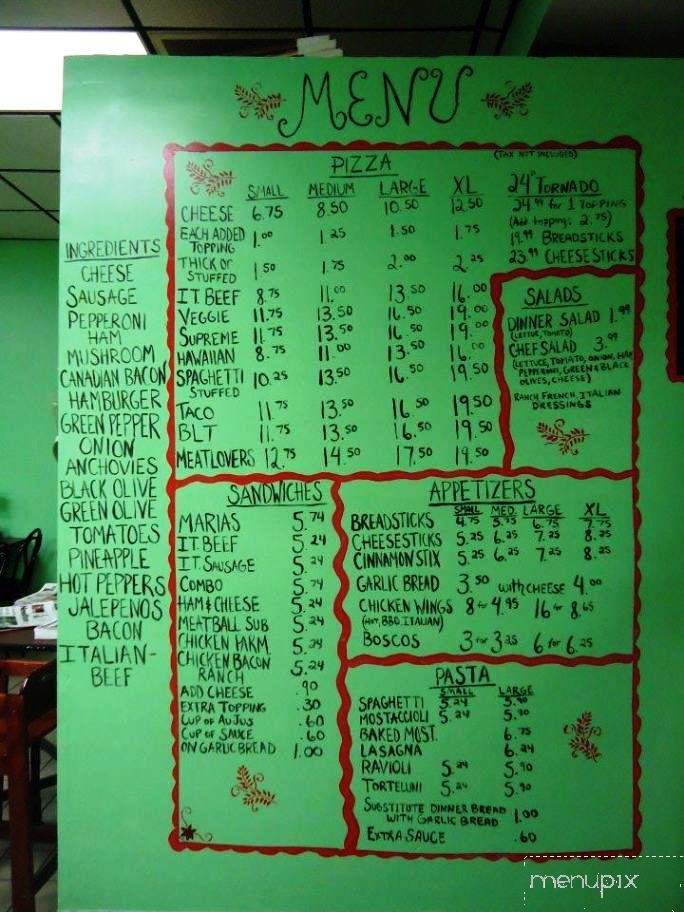 MENU
INGREDIENTS
CHEESE
SAUSAGE
PEPPERONI
HAM
MUSHROOM
CANADIAN BACON
HAMBURGER
GREEN PEPPER
ONION
ANCHOVIES
BLACK OLIVE
GREEN OLIVE
TOMATOES
PINEAPPLE
HOT PEPPERS
JALEPENOS
BACON
ITALIAN-
BEEF
PIZZA
SMALL MEDIUM LARGE XL
CHEESE 6.75 8.50 10.50 12.50
EACH ADDED
TOPPING 1.00 1.25 1.50 1.75
THICK OR
STUFFED 1.50 1.75 2.00 2.25
IT BEEF 8.75 11.00 13.50 16.00
VEGGIE 11.75 13.50 16.50 19.00
SUPREME 11.75 13.50 16.50 19.00
HAWAIIAN 8.75 11.00 13.50 16.00
SPAGHETTI
STUFFED 10.25 13.50 16.50 19.50
TACO 11.75 13.50 16.50 19.50
BLT 11.75 13.50 16.50 19.50
MEATLOVERS 12.75 14.50 17.50 19.50
(TAX NOT INCLUDED)
24" TORNADO
24.99 for 1 TOPPING
(Add topping: 2.75)
19.99 BREADSTICKS
23.99 CHEESESTICKS
SALADS
DINNER SALAD 1.99
(LETTUCE, TOMATO)
CHEF SALAD 3.99
(LETTUCE, TOMATO, ONION, HAM
PEPPERONI, GREEN & BLACK
OLIVES, CHEESE)
RANCH FRENCH, ITALIAN
DRESSINGS
SANDWICHES
MARIAS 5.74
IT. BEEF 5.24
I.T. SAUSAGE 5.24
COMBO 5.74
HAM & CHEESE 5.24
MEATBALL SUB 5.24
CHICKEN PARM. 5.24
CHICKEN BACON
RANCH 5.24
ADD CHEESE .90
EXTRA TOPPING .30
CUP OF AUJUS .60
CUP OF SAUCE .60
ON GARLIC BREAD 1.00
APPETIZERS
SMALL MED. LARGE XL
BREADSTICKS 4.75 5.75 6.75 7.75
CHEESESTICKS 5.25 6.25 7.25 8.25
CINNAMON STIX 5.25 6.25 7.25 8.25
GARLIC BREAD 3.50 with CHEESE 4.00
CHICKEN WINGS 8 for 4.95 16 for 8.65
(HOT, BBQ, ITALIAN)
BOSCOS 3 for 3.25 6 for 6.25
PASTA
SMALL LARGE
SPAGHETTI 5.24 5.90
MOSTACCIOLI 5.24 5.90
BAKED MOST. 6.75
LASAGNA 6.24
RAVIOLI 5.24 5.90
TORTELLINI 5.24 5.90
SUBSTITUTE DINNER BREAD
WITH GARLIC BREAD 1.00
EXTRA SAUCE .60
menupix